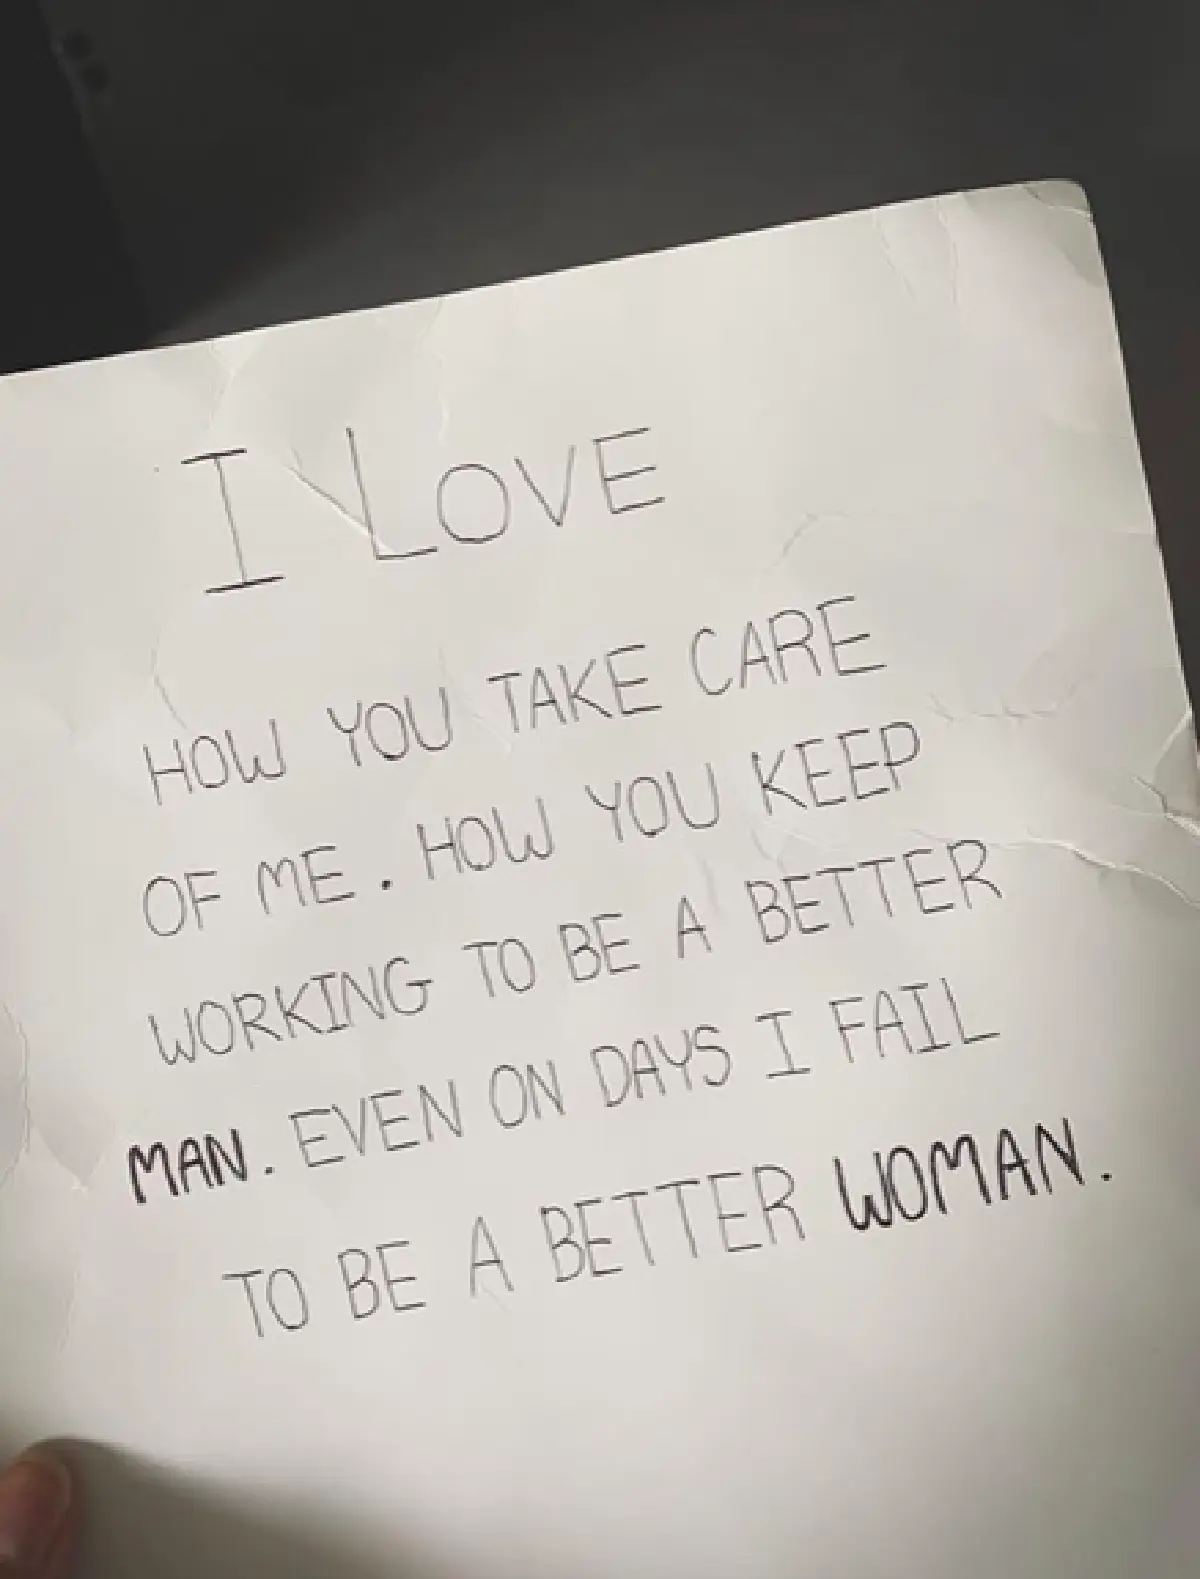 I LOVE
HOW YOU TAKE CARE
OF ME. HOW YOU KEEP
WORKING TO BE A BETTER
MAN. EVEN ON DAYS I FAIL
TO BE A BETTER WOMAN.